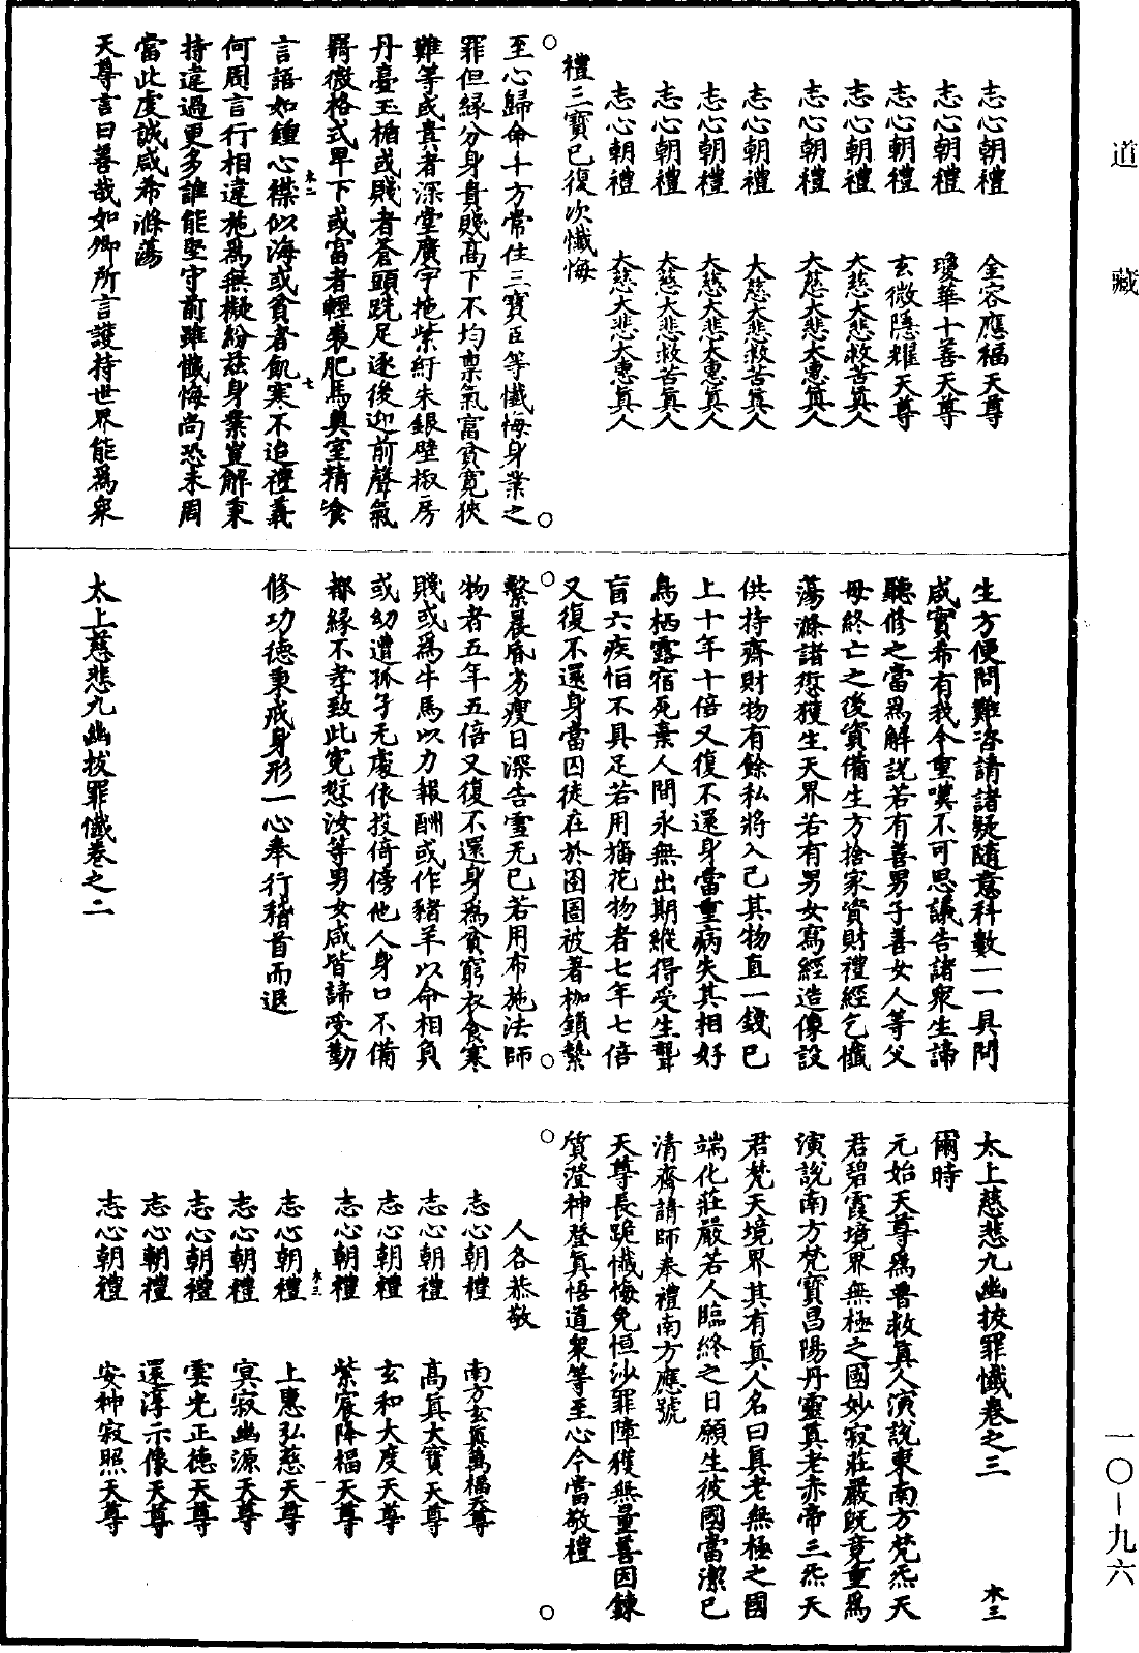 道藏
志心朝禮　金容應福天尊
志心朝禮　瓊華十善天尊
志心朝禮　玄微隱耀天尊
志心朝禮　大慈大悲救苦真人
志心朝禮　大慈大悲大惠真人
志心朝禮　大慈大悲救苦真人
志心朝禮　大慈大悲大惠真人
志心朝禮　大慈大悲救苦真人
志心朝禮　大慈大悲大惠真人
禮三寶已復次懺悔
至心歸命十方常住三寶臣等懺悔身業之
罪但緣分身貴賤高下不均稟氣富貧寬狹
難等或貴者深堂廣宇拖紫紆朱銀壁椒房
丹臺玉楯或賤者蒼頭跣足逐後迎前聲氣
羇微格式卑下或富者輕裘肥馬奧室精飡
言語如鍾心襟似海或貧者飢寒不迨禮義
何周言行相違施爲無擬紛茲身業豈解秉
持違過更多誰能堅守前雖懺悔尚恐未周
當此虔誠咸希滌蕩
天尊言曰善哉如卿所言護持世界能爲衆
木二　七
生方便問難咨請諸疑隨意科數一一具問
咸實希有我今重嘆不可思議告諸衆生諦
聽修之當爲解説若有善男子善女人等父
母終亡之後資備生方捨家資財禮經乞懺
蕩滌諸愆獲生天界若有男女寫經造像設
供持齋財物有餘私將入己其物直一錢已
上十年十倍又復不還身當重病失其相好
鳥栖露宿死棄人間永無出期縱得受生聾
盲六疾怕不具足若用旛花物者七年七倍
又復不還身當囚徒在於囹圄被著枷鎖縶
繫晨昏劣瘦日深告靈无已若用布施法師
物者五年五倍又復不還身爲貧窮衣食寒
賤或爲牛馬以力報酬或作豬羊以命相負
或幼遭孤孑无處依投倚傍他人身口不備
都緣不孝致此寃愆汝等男女咸皆諦受勤
修功德秉戒身形一心奉行稽首而退
太上慈悲九幽拔罪懺卷之二
太上慈悲九幽拔罪懺卷之三　木三
爾時
元始天尊爲普救真人演説東南方梵炁天
君碧霞境界無極之國妙寂莊嚴既竟重爲
演説南方梵寶昌陽丹靈真老赤帝三炁天
君梵天境界其有真人名曰真老無極之國
端化莊嚴若人臨終之日願生彼國當潔己
清齋請師奉禮南方應號
天尊長跪懺悔免恒沙罪障獲無量善因鍊
質澄神登真悟道衆等至心今當敬禮
人各恭敬
志心朝禮　南方玄真萬福天尊
志心朝禮　高真大寶天尊
志心朝禮　玄和大度天尊
志心朝禮　紫宸降福天尊
志心朝禮　上惠弘慈天尊
志心朝禮　冥寂幽源天尊
志心朝禮　雲光正德天尊
志心朝禮　還淳示像天尊
志心朝禮　安神寂照天尊
木三　一
一〇—九六